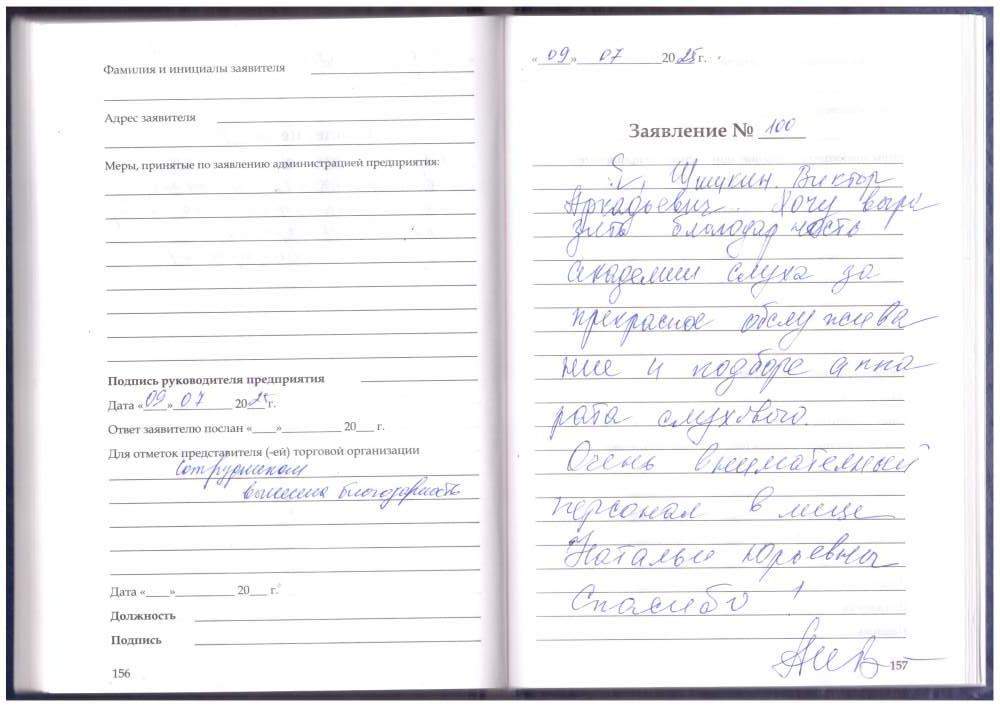 Фамилия и инициалы заявителя
Адрес заявителя
Меры, принятые по заявлению администрацией предприятия:
Подпись руководителя предприятия
Дата «09» 07 2025 г.
Ответ заявителю послан «____»__________ 20___ г.
Для отметок представителя (-ей) торговой организации
сотрудникам
вынесена благодарность
Дата «____»__________ 20___ г.
Должность
Подпись
156
«09» 07 2025 г.
Заявление № 100
Я, Шишукин Виктор
Аркадьевич. Хочу выра
зить благодарность
академии слуха за
прекрасное обслужива
ние и подборе аппа
рата слухового.
Очень внимательный
персонал в лице
Натальи Юрьевны
Спасибо !
157